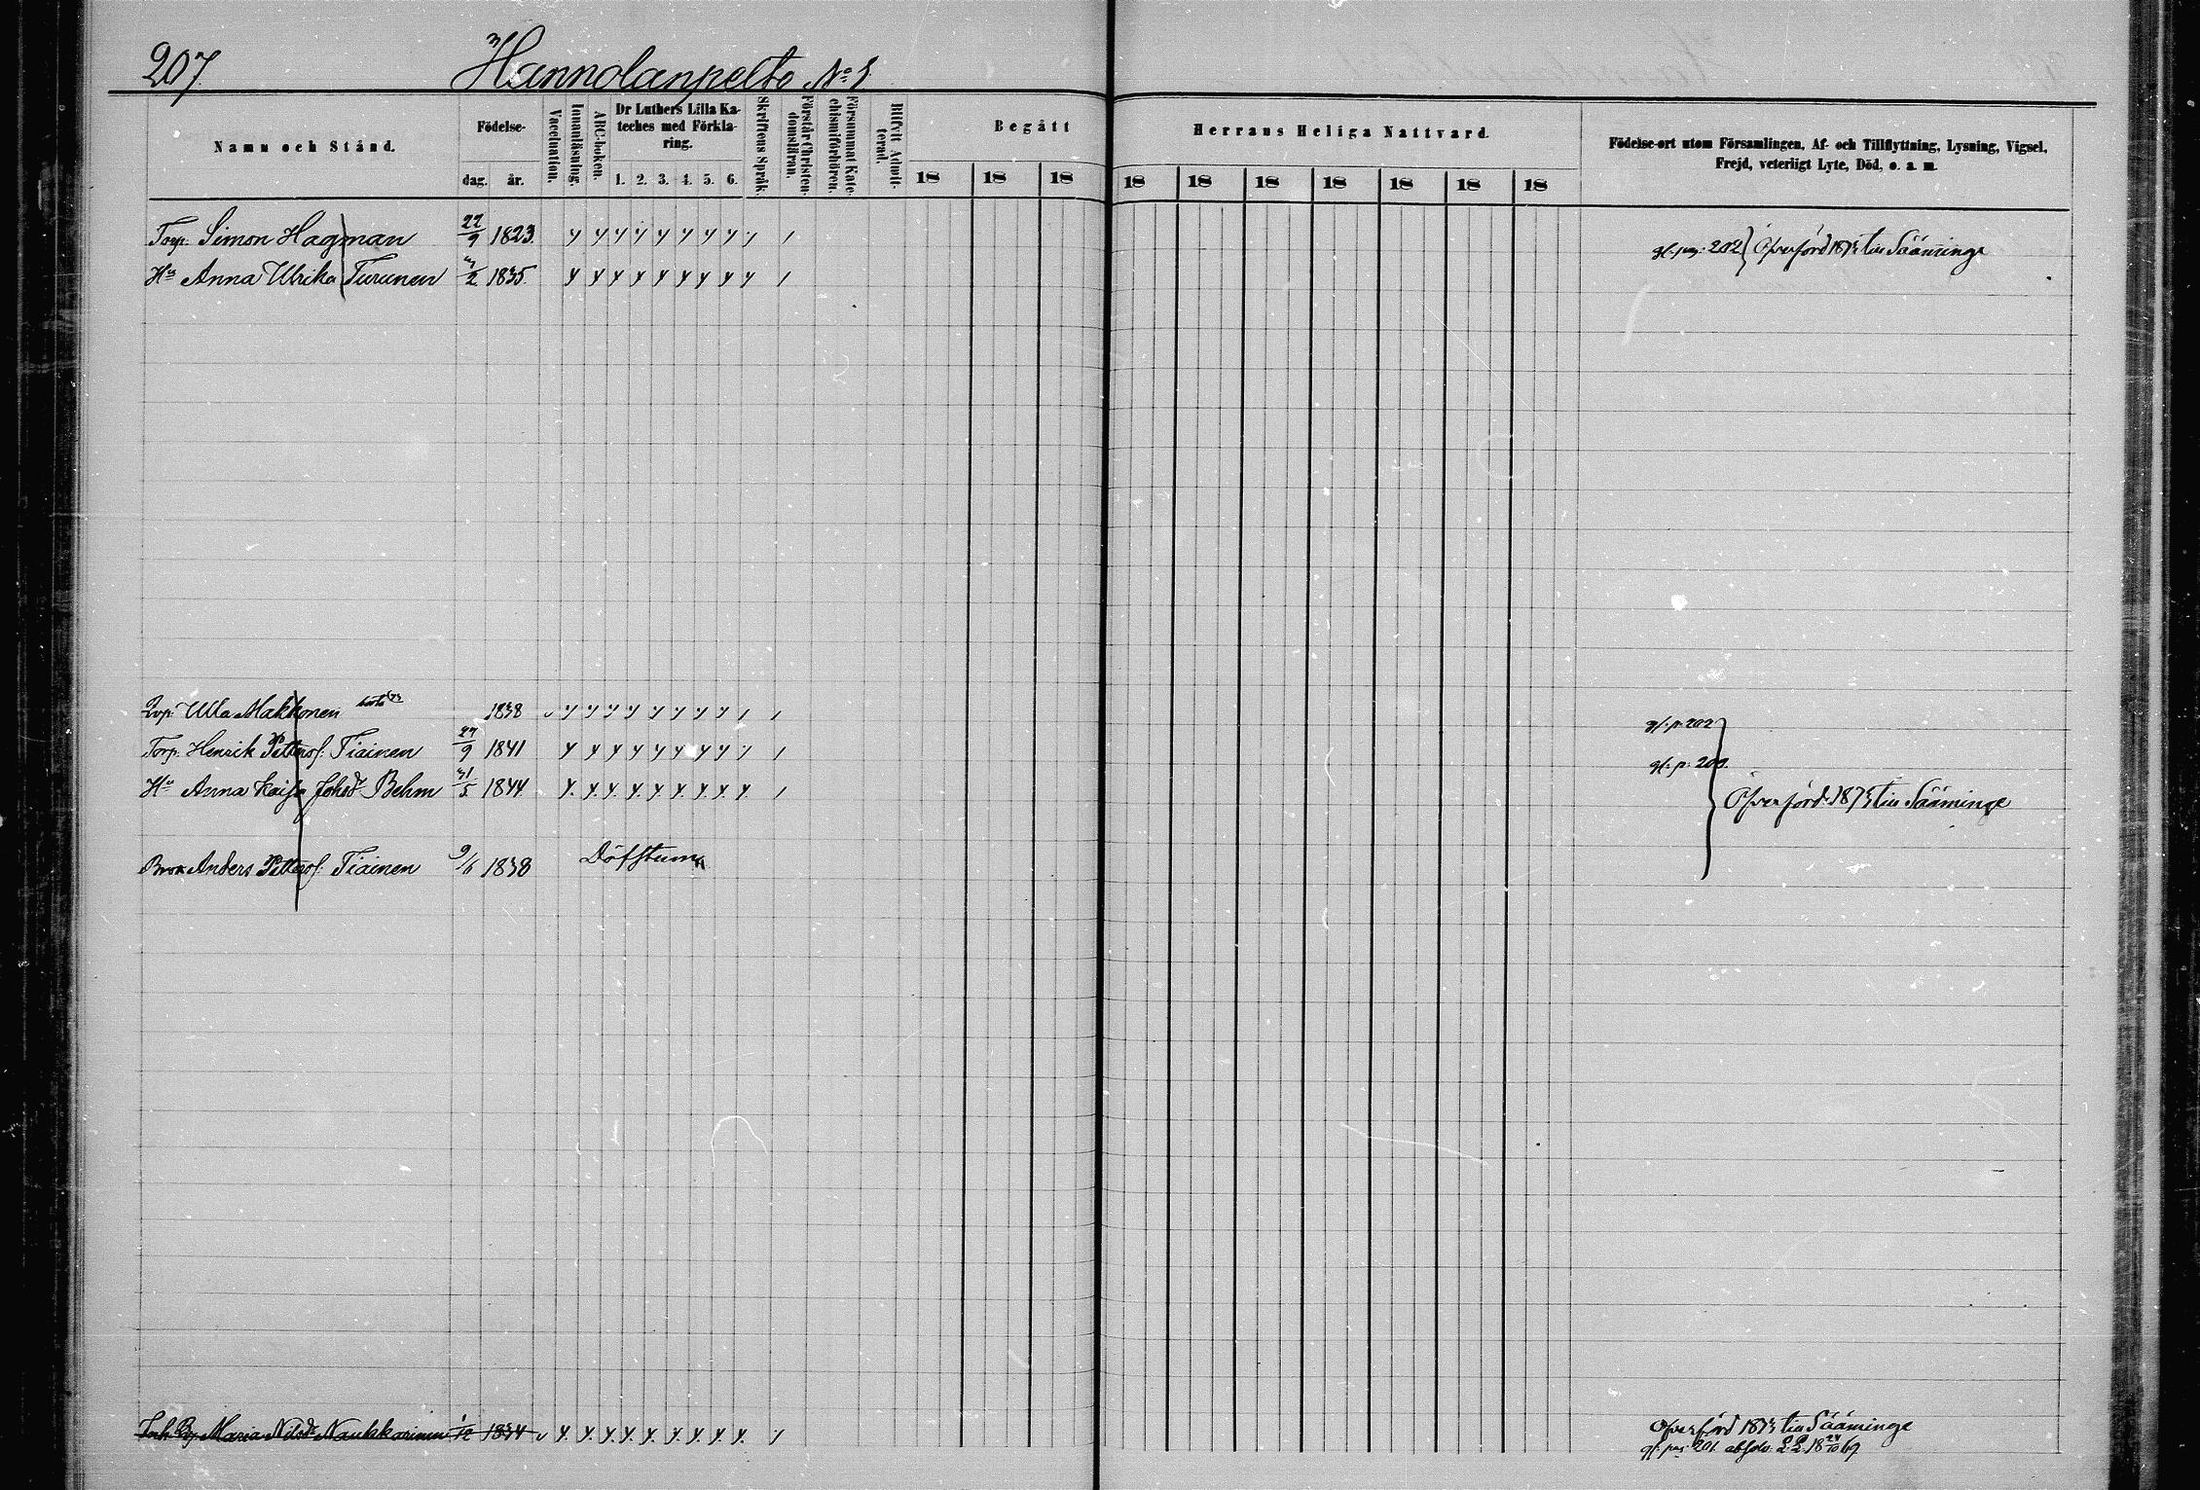 207.
Hannolanpelto No 1
Namn och Stånd.
Födelse-
dag.
år.
Vaccination.
Innanläsning.
ABC-boken.
Dr Luthers Lilla Ka-
teches med Förkla-
ring.
1. 2. 3. 4. 5. 6.
Skriftens Språk.
Förstår Christen-
domsläran.
Försummat Kate-
chismiförhören.
Blifvit Admit-
terad.
Begått
Herrans Heliga Nattvard.
18 18 18 18 18 18 18 18 18 18
Födelse-ort utom Församlingen, Af- och Tillflyttning, Lysning, Vigsel,
Frejd, veterligt Lyte, Död, o. a. m.
Torp. Simon Hagman 22/9 1823. pag: 202 Öfverförd 1873 till Sääminge
Hu Anna Ulrika Turunen 3/2 1835.
Ulla Makkonen 1838 p. 202
Torp. Henrik Pettersf. Tiainen 27/9 1841 p. 200.
Hu Anna Kaisa Johsdr Behm 31/5 1844 Öfverförd 1873 till Sääminge
Bror Anders Pettersf. Tiainen 9/6 1838 Döfstum
Inh. Maria Nilsdr Naukkarinen 1/12 1834 Öfverförd 1873 till Sääminge
pag: 201 absolv. 24/10 69